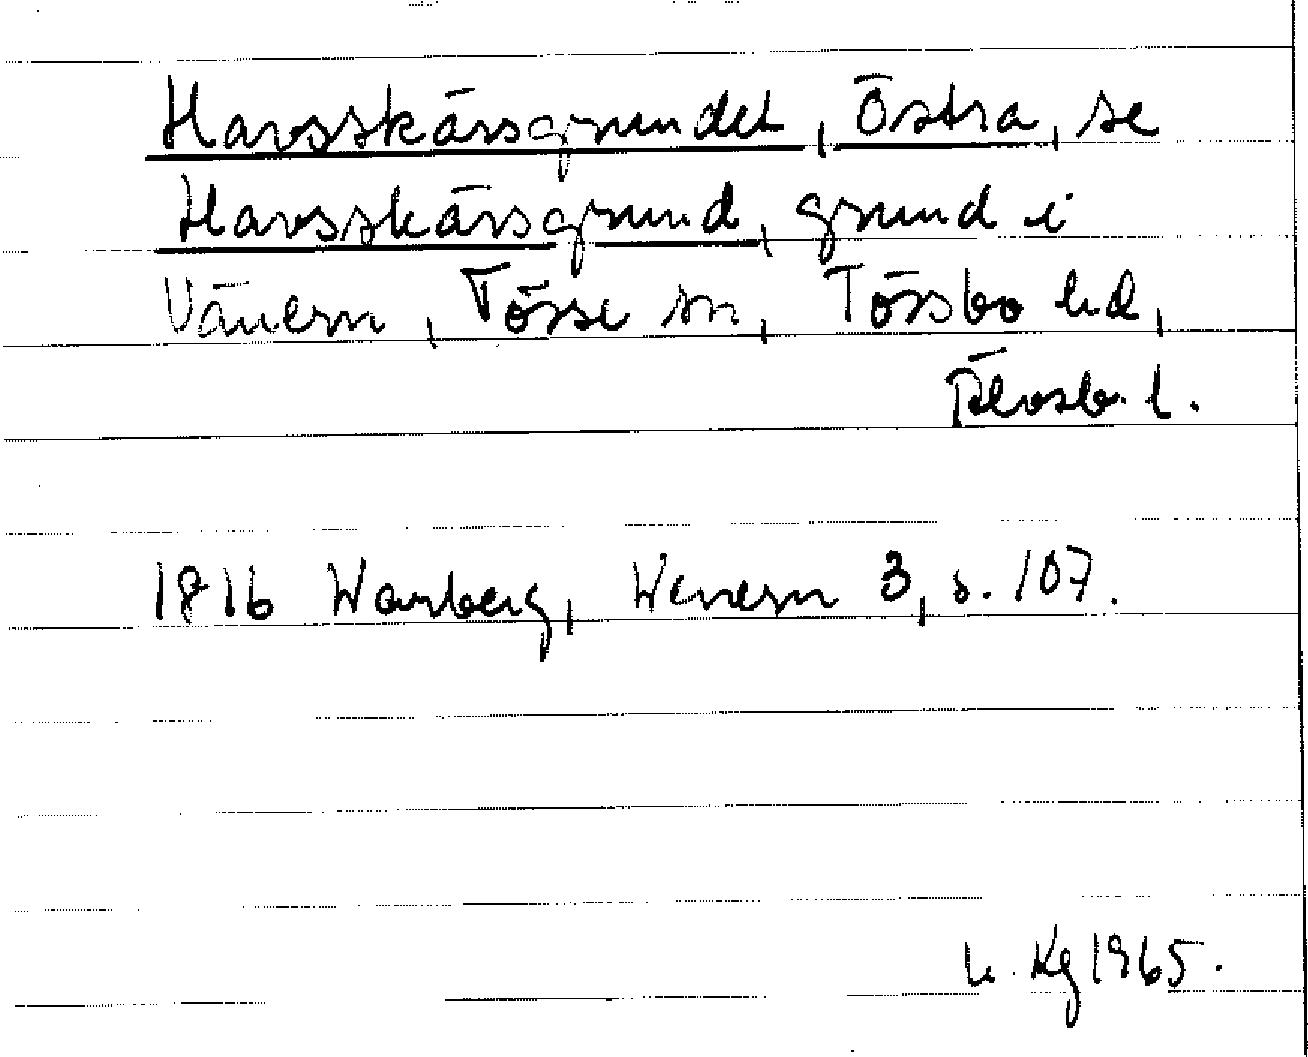 Havsskärsgrundet, Östra, se
Havsskärsgrund, grund i
Vänern, Tösse sn, Tössbo hd,
Älvsb. l.
1816 Warberg, Wenern 3, s. 107.
Kg 1965.